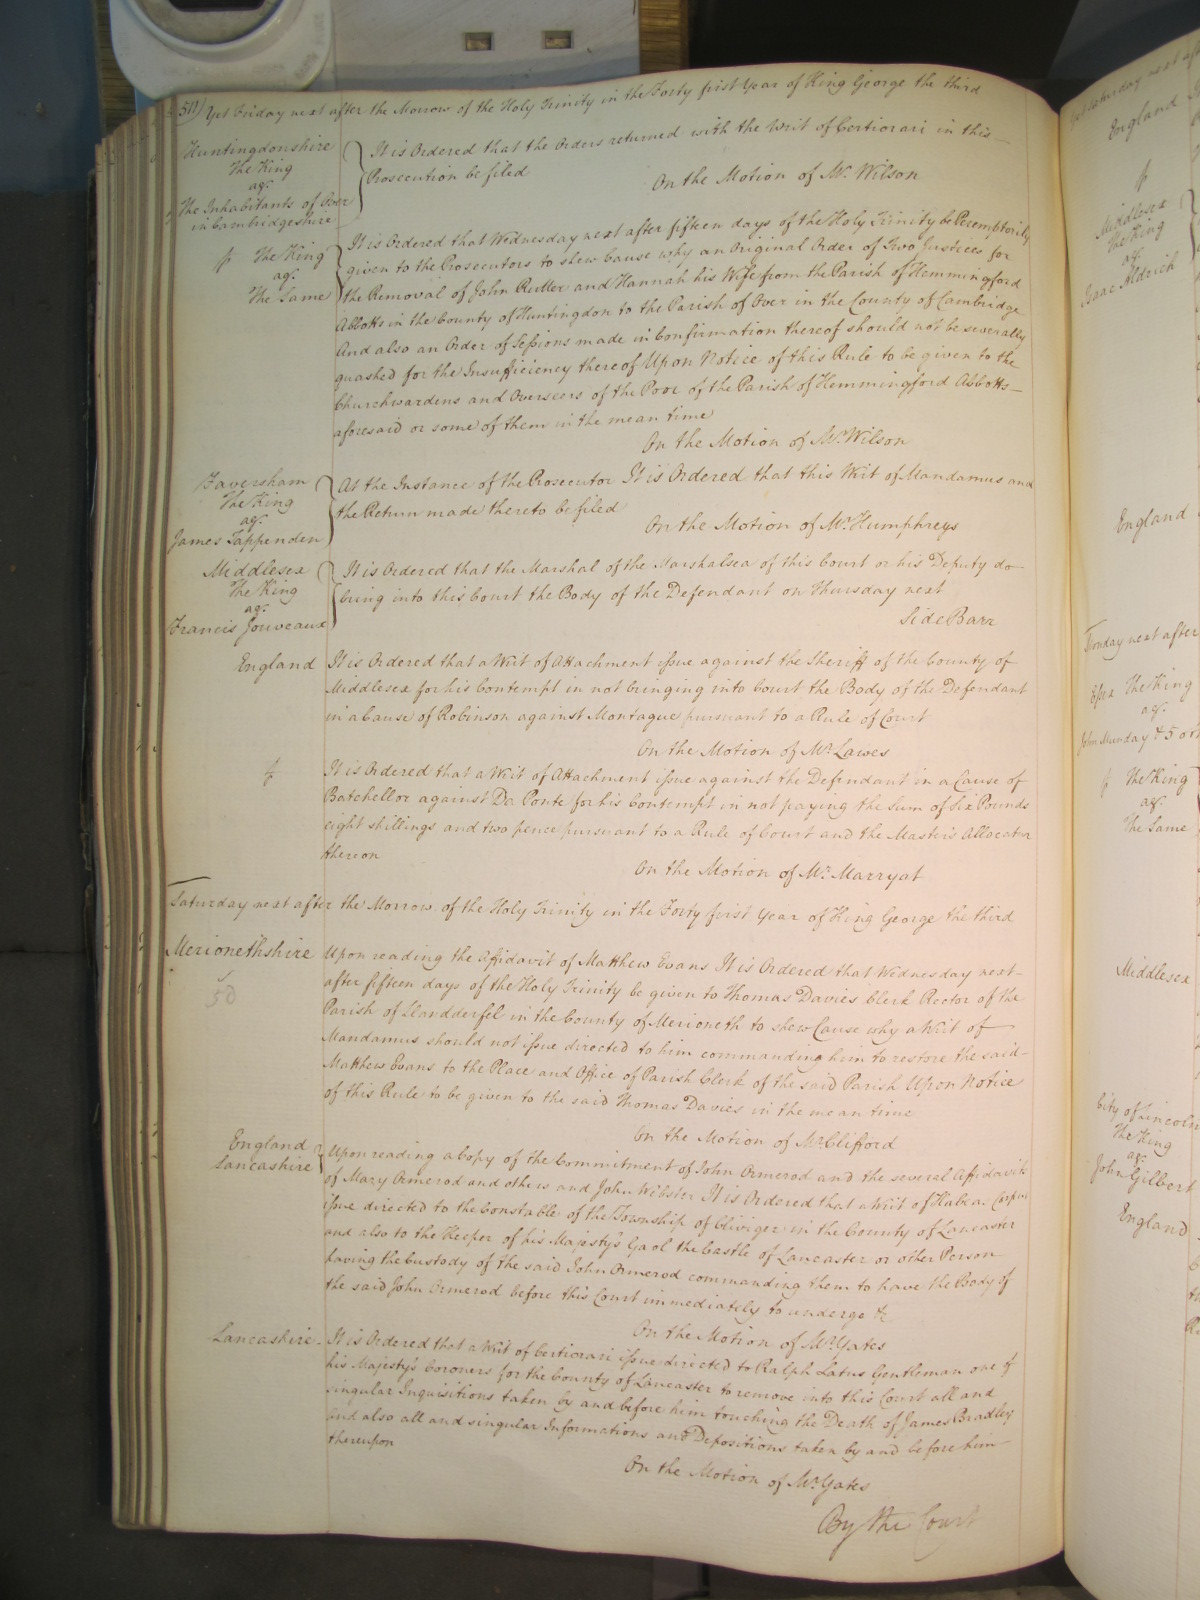 Yet Friday next after the Morrow of the Holy Trinity in the Forty first Year of King George the third
Huntingdonshire
The King
agt.
The Inhabitants of Over
in Cambridgeshire
It is Ordered that the Orders returned with the Writ of Certiorari in this
Prosecution be filed
On the Motion of Mr. Wilson
The King
agt.
The Same
It is Ordered that Wednesday next after fifteen days of the Holy Trinity be Peremptorily
given to the Prosecutors to shew Cause why an Original Order of Two Justices for
the Removal of John Rutler and Hannah his Wife from the Parish of Hemmingford
Abbotts in the County of Huntingdon to the Parish of Over in the County of Cambridge
And also an Order of Sessions made in Confirmation thereof should not be severally
quashed for the Insufficiency thereof Upon Notice of this Rule to be given to the
Churchwardens and Overseers of the Poor of the Parish of Hemmingford Abbotts
aforesaid or some of them in the mean time
On the Motion of Mr. Wilson
Faversham
The King
agt.
James Tappenden
At the Instance of the Prosecutor It is Ordered that this Writ of Mandamus and
the Return made thereto be filed
On the Motion of Mr. Humphreys
Middlesex
The King
agt.
Francis Jouveaux
It is Ordered that the Marshal of the Marshalsea of this Court or his Deputy do
bring into this Court the Body of the Defendant on Thursday next
Side Barr
England
It is Ordered that a Writ of Attachment issue against the Sheriff of the County of
Middlesex for his Contempt in not bringing into Court the Body of the Defendant
in a Cause of Robinson against Montague pursuant to a Rule of Court
On the Motion of Mr. Lawes
It is Ordered that a Writ of Attachment issue against the Defendant in a Cause of
Batchellor against Da Ponte for his Contempt in not paying the sum of Six Pounds
eight shillings and two pence pursuant to a Rule of Court and the Master's Allocatur
thereon
On the Motion of Mr. Marryat
Saturday next after the Morrow of the Holy Trinity in the Forty first Year of King George the third
Merionethshire
Upon reading the Affidavit of Matthew Evans It is Ordered that Wednesday next
after fifteen days of the Holy Trinity be given to Thomas Davies Clerk Rector of the
Parish of Llandderfel in the County of Merioneth to shew Cause why a Writ of
Mandamus should not issue directed to him commanding him to restore the said
Matthew Evans to the Place and Office of Parish Clerk of the said Parish Upon Notice
of this Rule to be given to the said Thomas Davies in the mean time
On the Motion of Mr. Clifford
England
Lancashire
Upon reading a Copy of the Commitment of John Ormerod and the several Affidavits
of Mary Ormerod and others and John Webster It is Ordered that a Writ of Habeas Corpus
issue directed to the Constable of the Township of Cliviger in the County of Lancaster
and also to the Keeper of his Majesty's Gaol the Castle of Lancaster or other Person
having the Custody of the said John Ormerod commanding them to have the Body of
the said John Ormerod before this Court immediately to undergo &c
On the Motion of Mr. Yates
Lancashire
It is Ordered that a Writ of Certiorari issue directed to Ralph Latus Gentleman one of
his Majesty's Coroners for the County of Lancaster to remove into this Court all and
singular Inquisitions taken by and before him touching the Death of James Bradley
and also all and singular Informations and Depositions taken by and before him
thereupon
On the Motion of Mr. Yates
By the Court
England
Middlesex
The King
agt.
Isaac Aldrich
England
Monday next after
The King
agt.
John Munday & 5 oth
The King
agt.
The Same
Middlesex
City of Lincoln
The King
agt.
John Gilbert
England